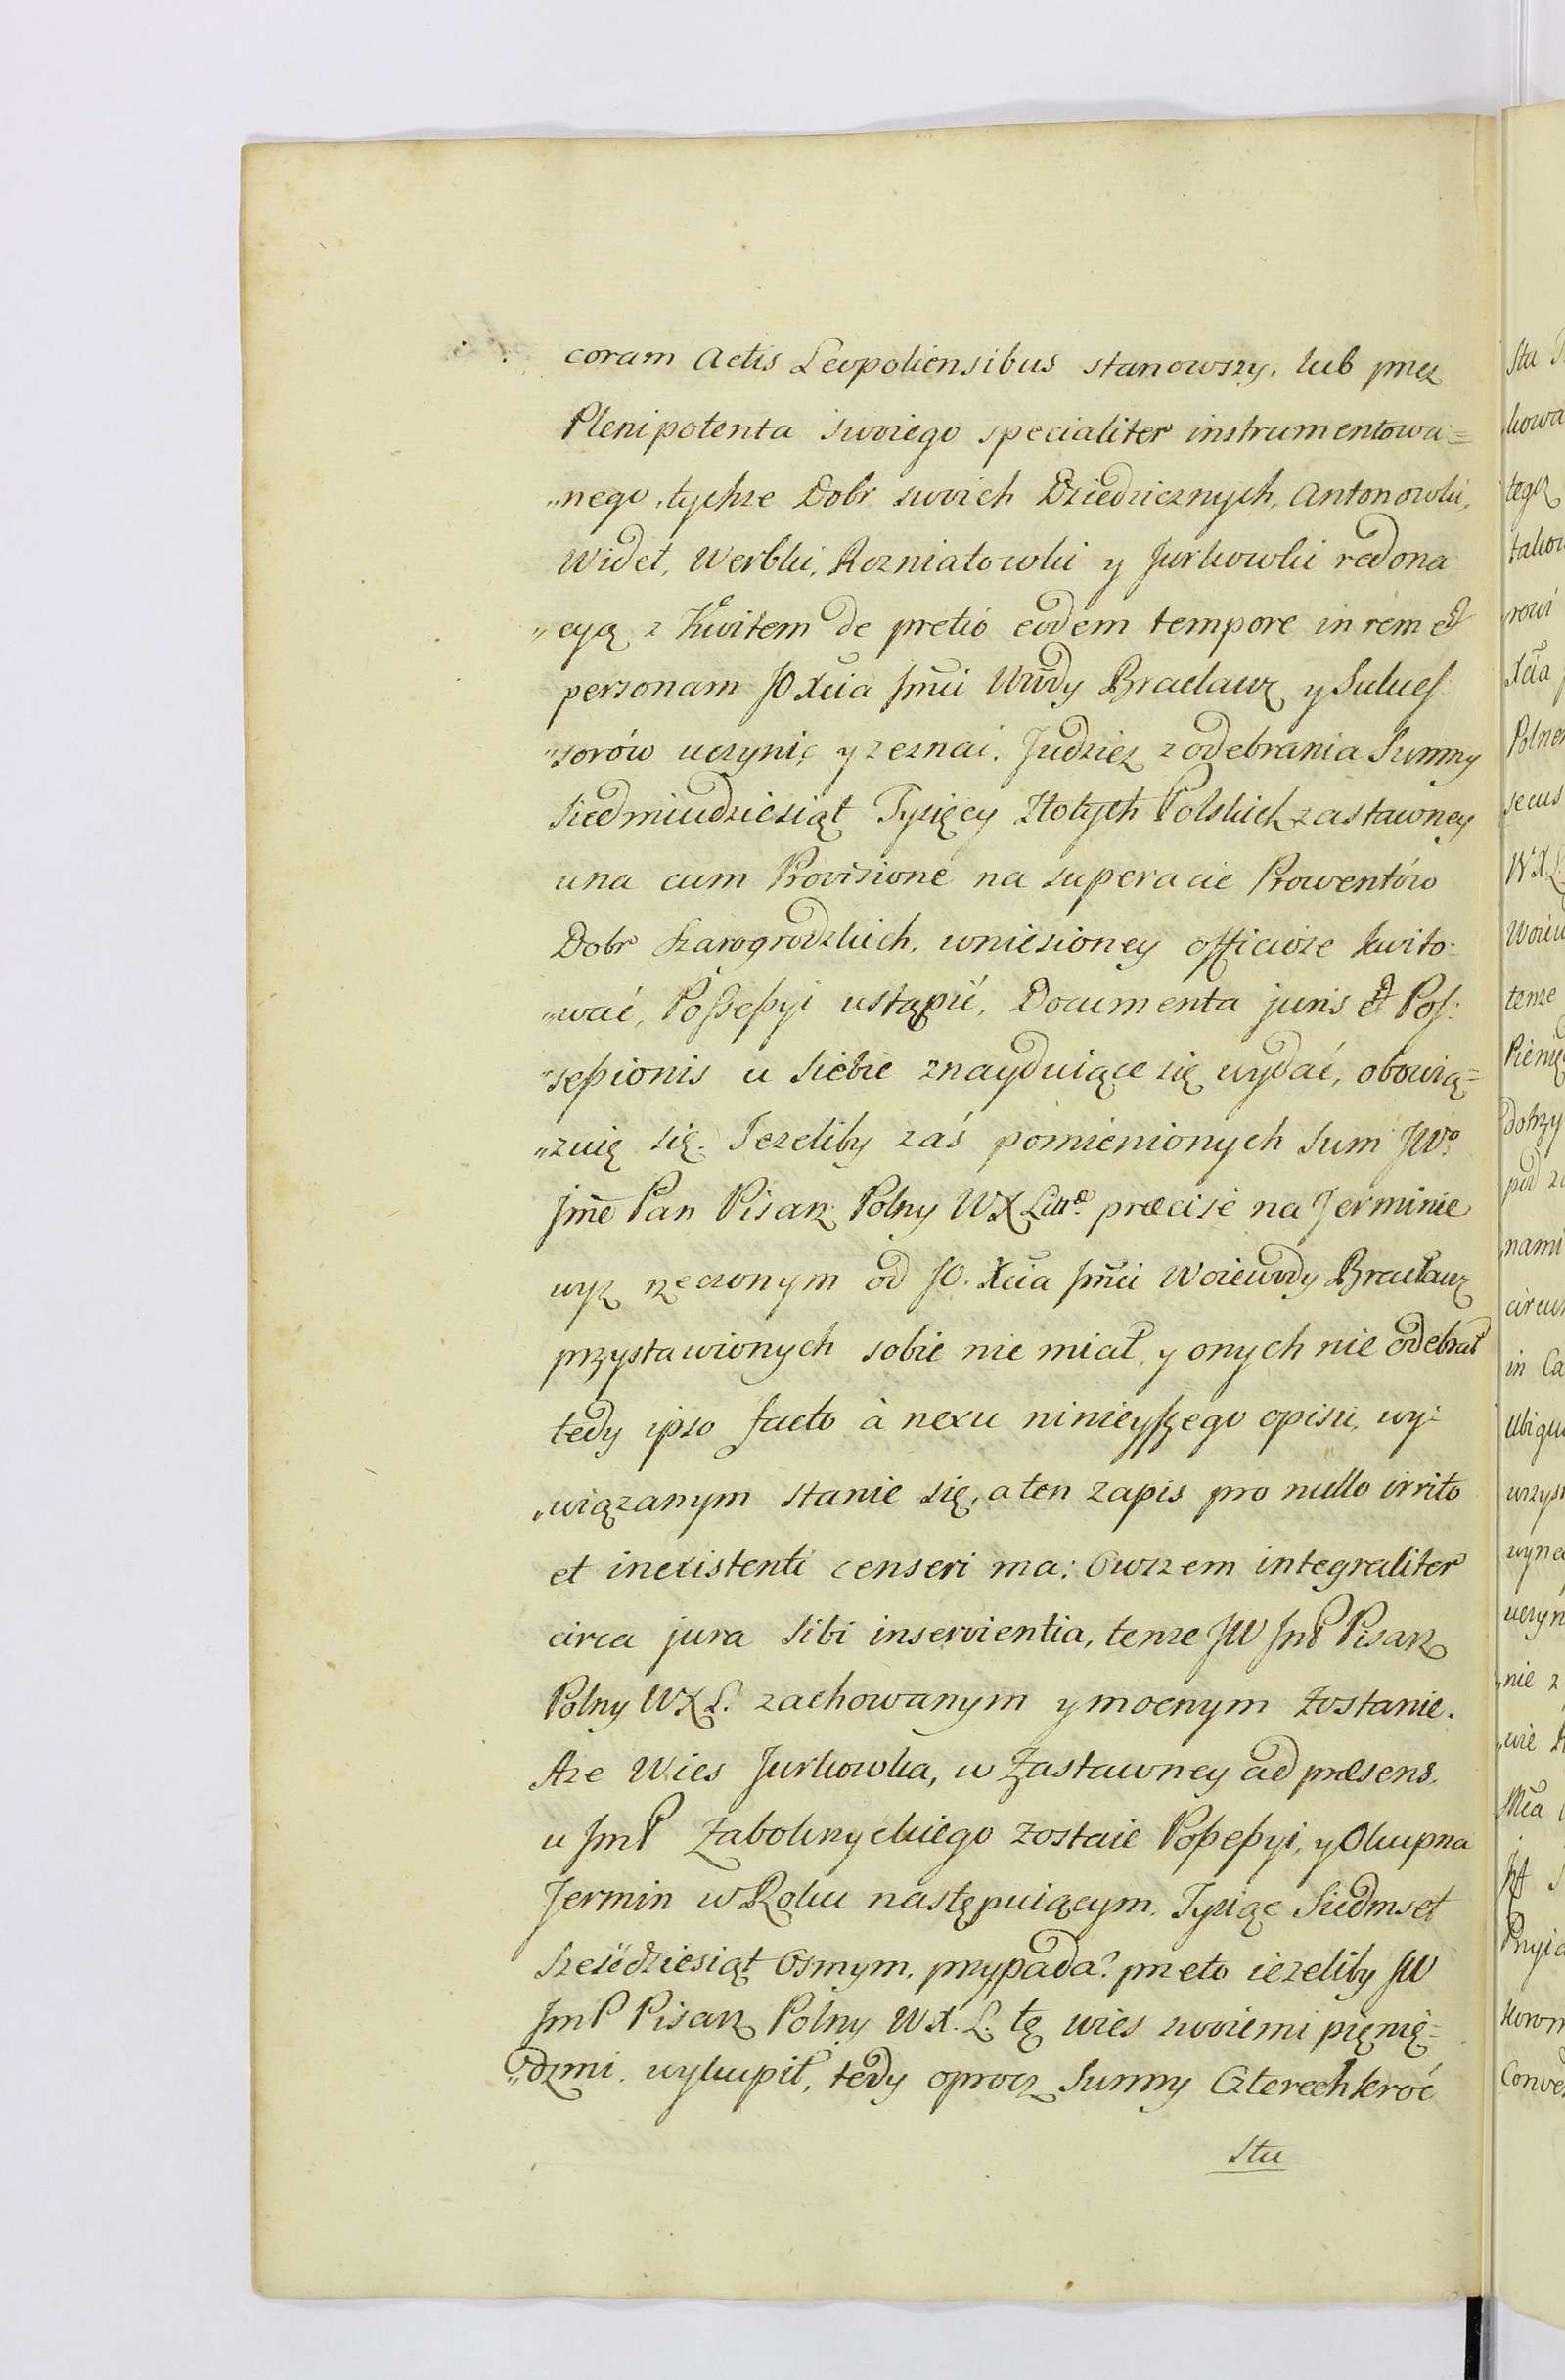 coram Actis Leopoliensibus stanowszy, lub przez
Plenipotenta swoiego specialiter instrumentowa=
„nego, tychże Dobr swoich Dziedzicznych, Antonowki,
Widet, Werbki, Rozniatowki y Jurkowki redona
„cyą z Kwitem de pretio eodem tempore in rem et
personam JO Xcia Jmći Wwdy Bracławz y Sukces
„sorów uczynić y zeznać. Judziez z odebrania Summy
Siedmiudziesiąt Tysięcy Złotych Polskich zastawney
una cum Provisione na superacie Prowentów
Dobr Szarogrodzkich, wniesioney officiose kwito=
„wać, Possessyi ustąpić, Documenta juris et Pos=
„sessionis u siebie znayduiące się wydać, obowią=
„zuię się. Jezeliby zaś pomienionych Sum JWo
Jmć Pan Pisarz Polny WXLitt præcise na Terminie
wyz rzeczonym od JO. Xcia Jmći Woiewody Bracławz
przystawionych sobie nie miał, y onych nie odebrał
tedy ipso facto à nexu ninieyszego opisu, wy=
„wiązanym stanie się, a ten zapis pro nullo irrito
et inexistenti censeri ma: Owszem integraliter
circa jura sibi inservientia, tenze JW JmP Pisarz
Polny WXL. zachowanym y mocnym zostanie.
Aze Wies Jurkowka, w Zastawney ad præsens
u JmP Zabokrzyckiego zostaie Possessyi, y Okupna
Termin w Roku następuiącym Tysiąc Siedmset
Sześćdziesiąt Osmym, przypada? przeto iezeliby JW
JmP Pisarz Polny WX.L. tę wies swoiemi pięnię=
„dzmi wykupił, tedy oprocz Summy Czterechkroć
Stu